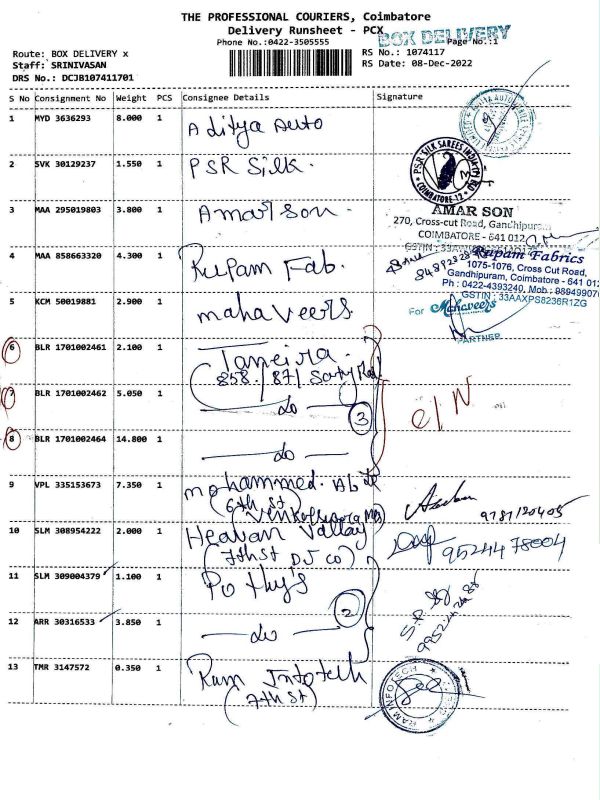 THE PROFESSIONAL COURIERS, Coimbatore
Delivery Runsheet - PCX
BOX DELIVERY
Phone No.:0422-3505555
Page No.:1
Route: BOX DELIVERY x
RS No.: 1074117
Staff: SRINIVASAN
RS Date: 08-Dec-2022
DRS No.: DCJB107411701
S No Consignment No Weight PCS Consignee Details Signature
1 MYD 3636293 8.000 1 Aditya Auto
2 SVK 30129237 1.550 1 PSR Silk.
PSR SILK SAREES INDIA
COIMBATORE-12
3 MAA 295019803 3.800 1 Amar Son.
AMAR SON
270, Cross-cut Road, Gandhipuram
COIMBATORE - 641 012
4 MAA 858663320 4.300 1 Rupam Fab.
Rupam Fabrics
1075-1076, Cross Cut Road,
Gandhipuram, Coimbatore - 641 012
Ph : 0422-4393240, Mob.: 98949907
GSTIN : 33AAXPS8236R1ZG
5 KCM 50019881 2.900 1 mahaveers.
For Mahaveers
PARTNER
6 BLR 1701002461 2.100 1 Taneira.
(858/87/
7 BLR 1701002462 5.050 1 — do —
3
8 BLR 1701002464 14.800 1 — do —
9 VPL 335153673 7.350 1 mohammed.
(6th St)
9787120405
10 SLM 308954222 2.000 1 Heavan Valley
(7th St DJ Co)
9524478004
11 SLM 309004379 1.100 1 Pothy's
2
12 ARR 30316533 3.850 1 — do —
13 TMR 3147572 0.350 1 Ram Infotech
(7th St)
RAM INFOTECH